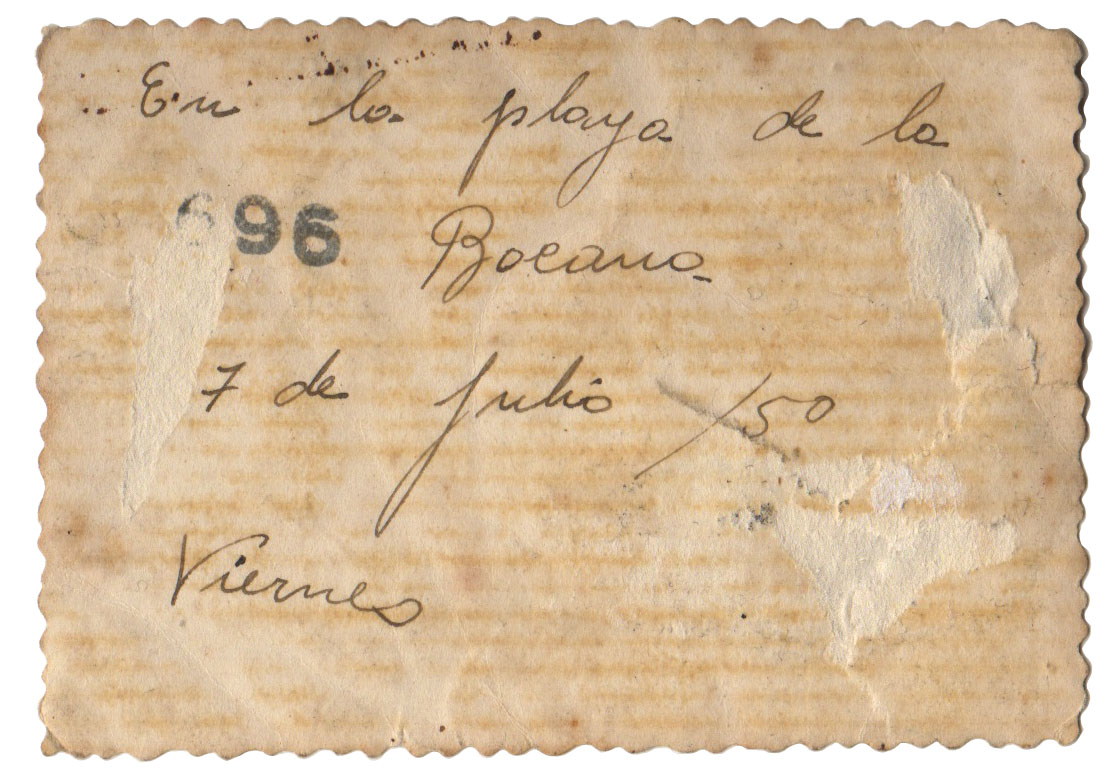 En la playa de la
696 Bocana
7 de Julio /50
Viernes